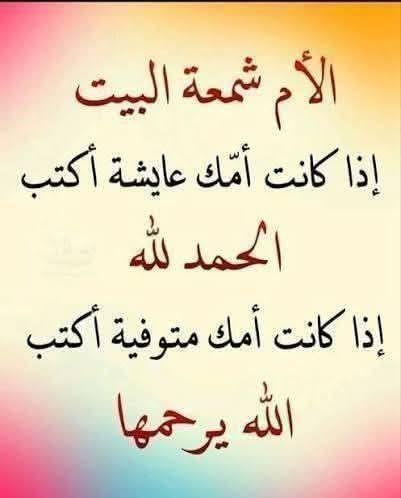 الأم شمعة البيت
إذا كانت أمّك عايشة أكتب
الحمد لله
إذا كانت أمك متوفية أكتب
الله يرحمها